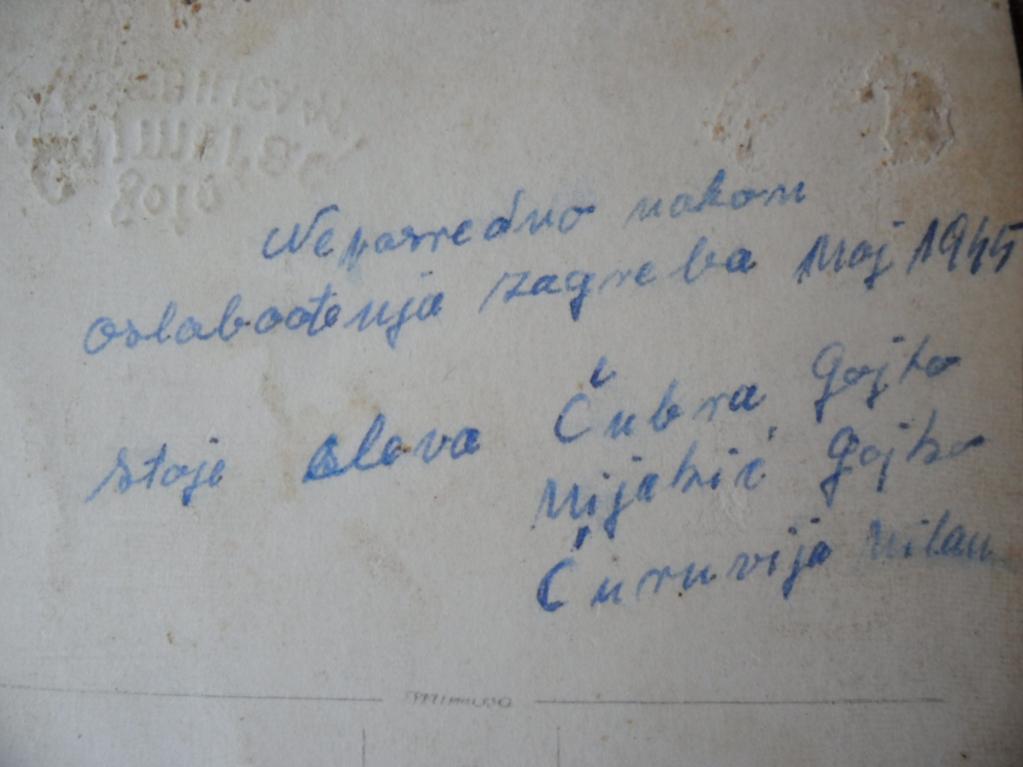 Neposredno nakon
oslabođenja zagreba Maj 1945
stoje sleva Čubra Gojko
Mijakić Gojko
Ćuruvija Milan